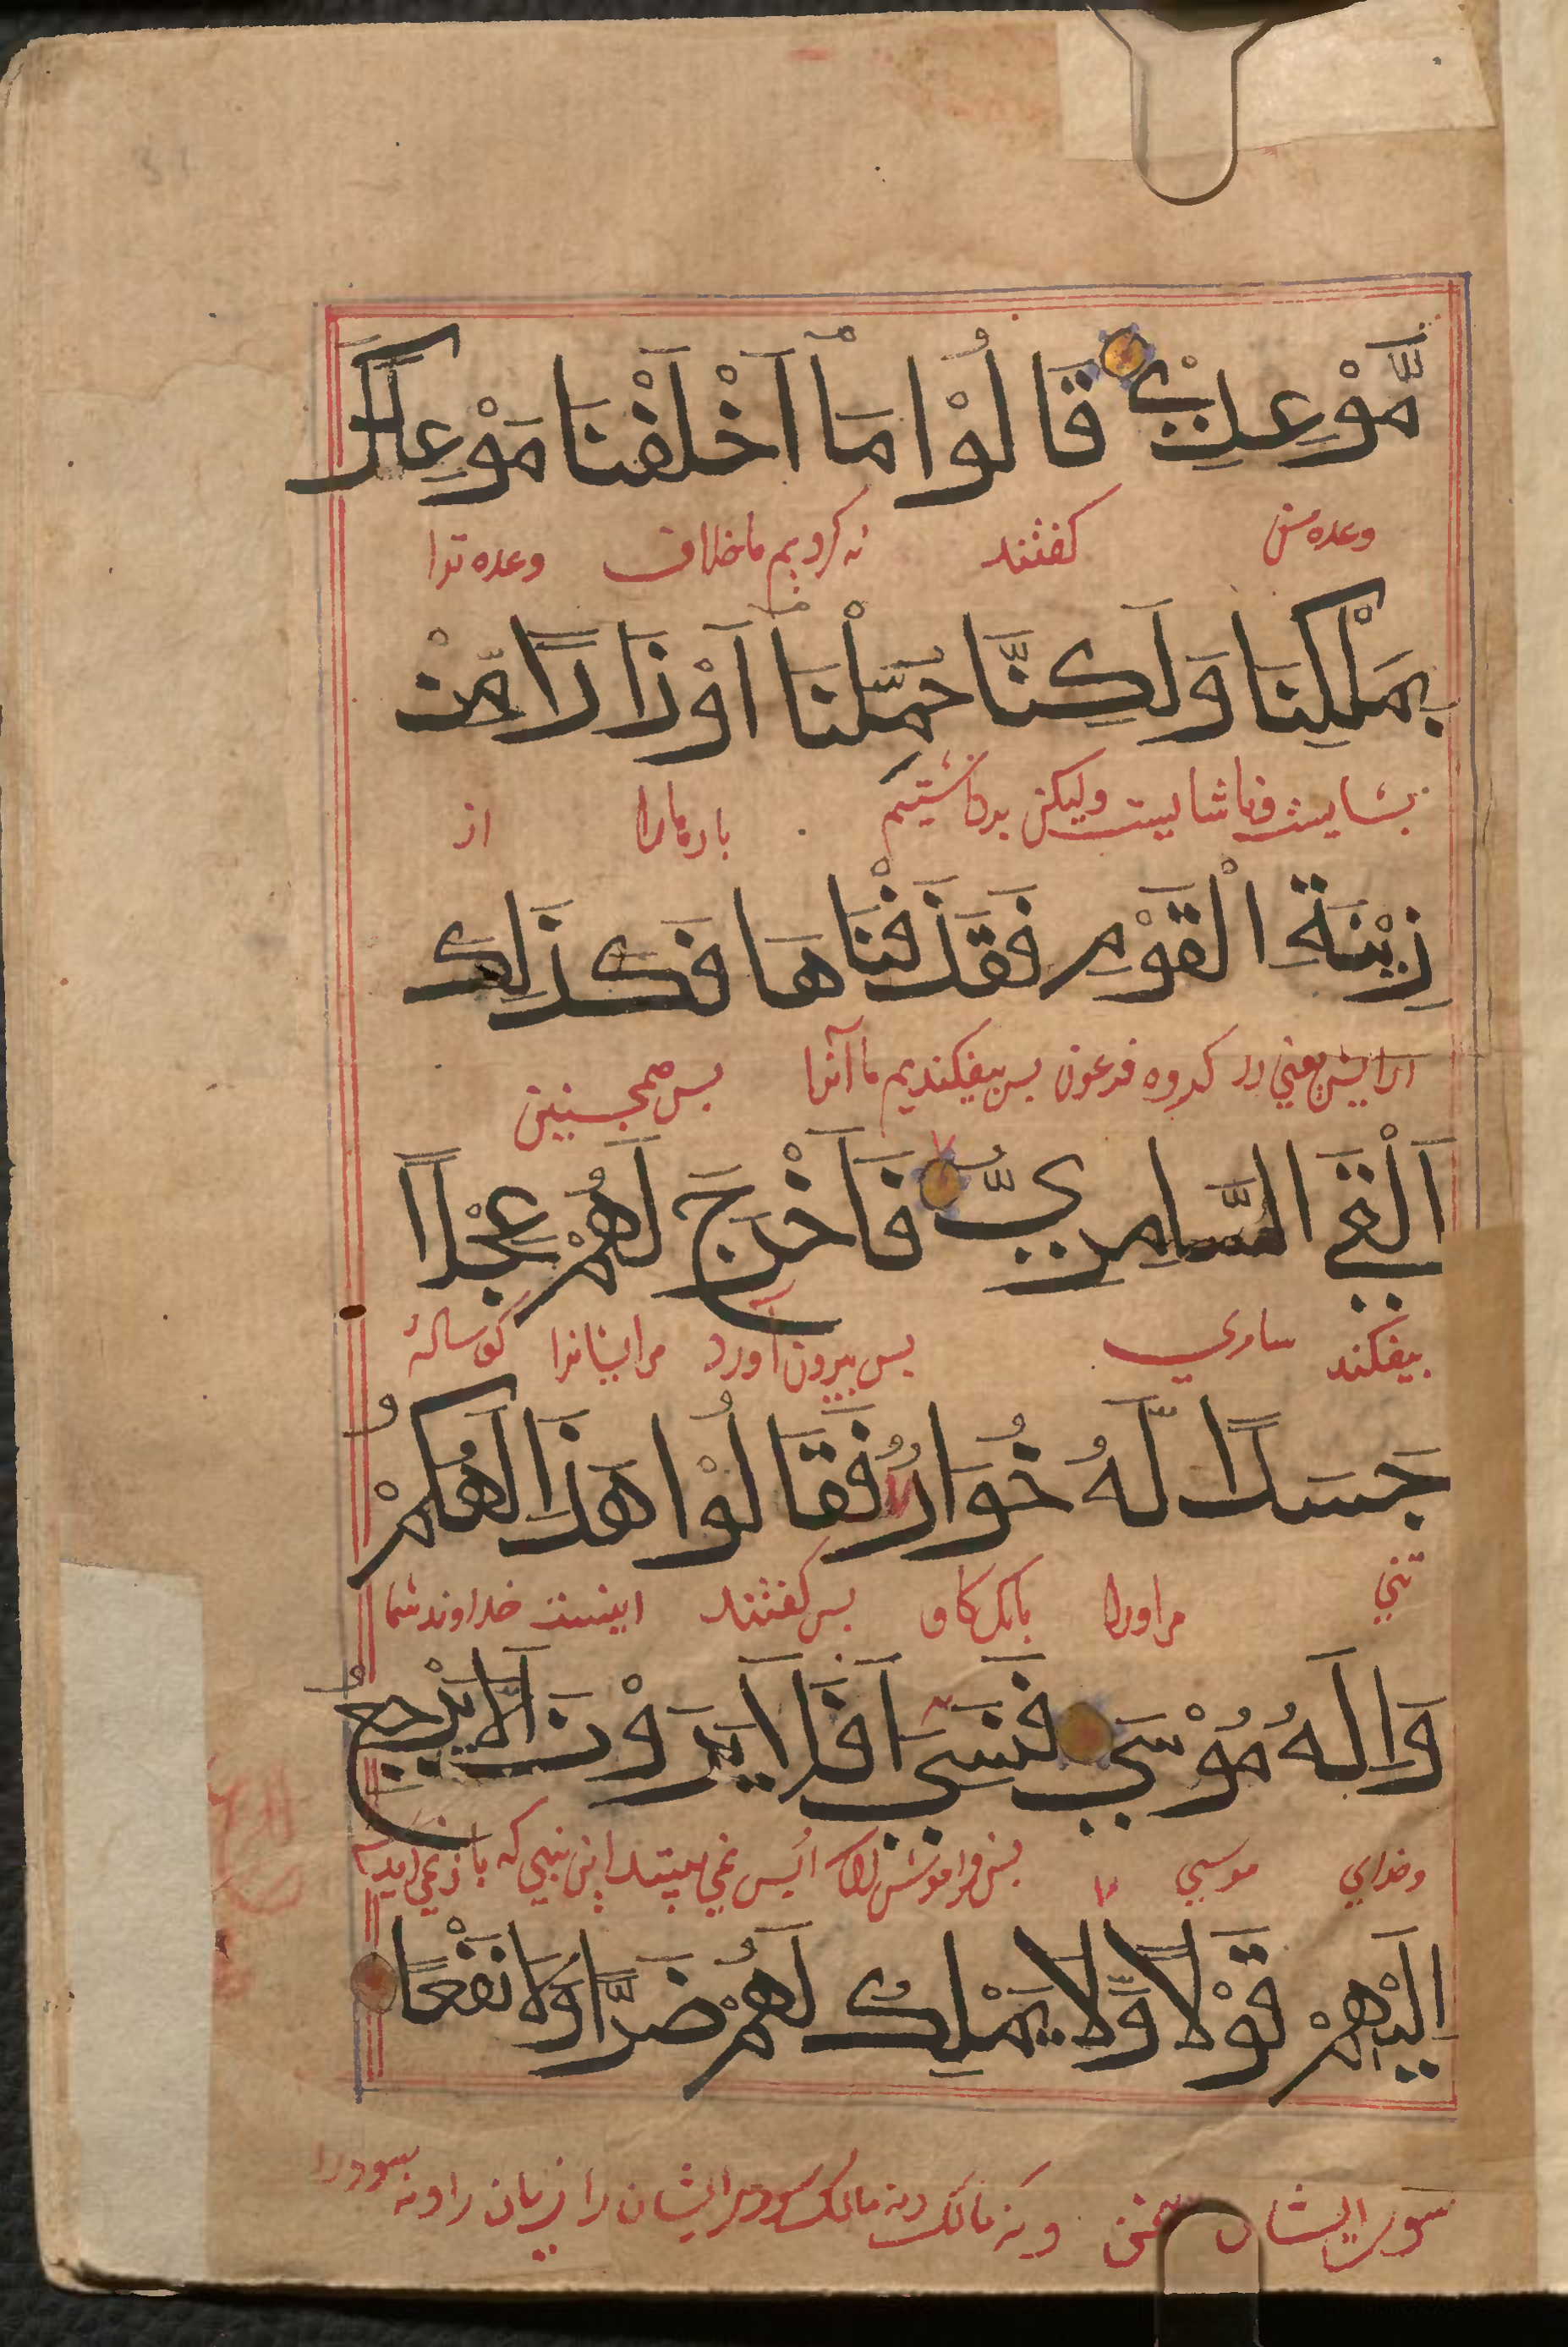 مَّوْعِدِيْ قَالُوْا مَاۤ اَخْلَفْنَا مَوْعِدَكَ
وعده من گفتند نه کردیم ما خلاف وعده ترا
بِمَلْكِنَا وَلَكِنَّا حُمِّلْنَاۤ اَوْزَارًا مِّنْ
ولیکن برداشتیم بارهارا از
زِيْنَةِ الْقَوْمِ فَقَذَفْنَاهَا فَكَذَلِكَ
ارایش یعنی از کروه فرعون پس بیفکندیم ما آنرا پس همچنین
اَلْقَي السَّامِرِيُّ فَاَخْرَجَ لَهُمْ عِجْلًا
بیفکند سامري پس بیرون آورد مرایشانرا گوساله
جَسَدًا لَّهُ خُوَارٌ فَقَالُوْا هَذَا اِلَهُكُمْ
تني مر اورا بانک کاو پس گفتند اینست خداوند شما
وَاِلَهُ مُوْسَي فَنَسِيَ اَفَلَا يَرَوْنَ اَلَّا يَرْجِعُ
وخداي موسي پس فراموش کرد ایا پس نمي بینند این نیي که باز نمي آید
اِلَيْهِمْ قَوْلًا وَّلَا يَمْلِكُ لَهُمْ ضَرًّا وَّلَا نَفْعًا
سوي ایشان سخن ونه مالک ونه مالک مرایشان را زیان را ونه سود را